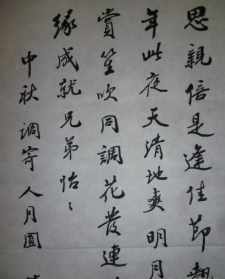 思親倍是逢佳節
年此夜天清地爽明月
賞笙吹同調花發連
緣成就兄弟怡〻
中秋調寄人月圓